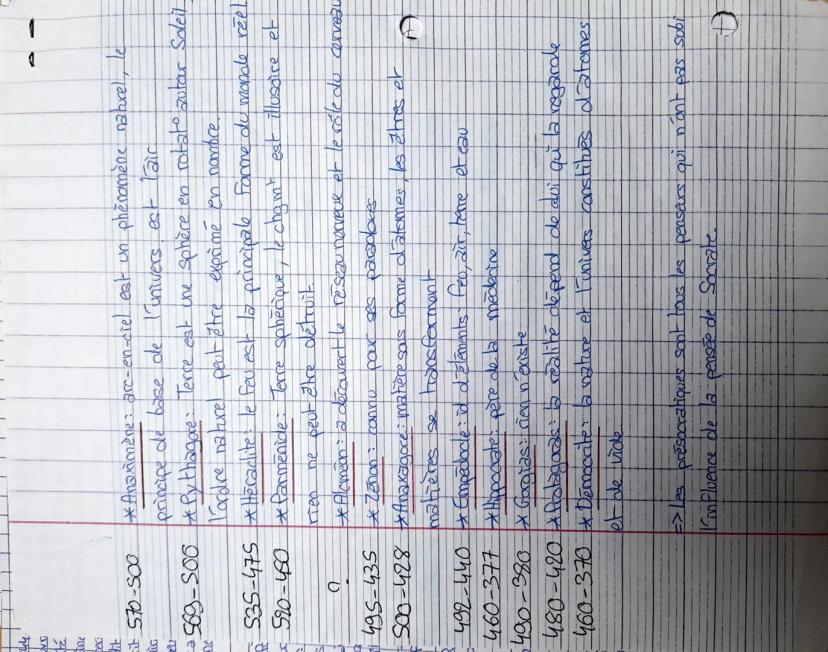 570-500 * Anaximène: arc-en-ciel est un phénomène naturel, le
principe de base de l'univers est l'air
569-500 * Pythagore: Terre est une sphère en rotat° autour Soleil,
l'ordre naturel peut être exprimé en nombre.
535-475 * Héraclite: le feu est la principale forme du monde réel
520-450 * Parménide: Terre sphérique, le chgmt est illusoire et
rien ne peut être détruit
? * Alcméon: a découvert le réseau nerveux et le rôle du cerveau
495-435 * Zénon: connu pour ses paradoxes
500-428 * Anaxagore: matière sous forme d'atomes, les êtres et
matières se transforment
492-440 * Empédocle: id d'éléments: feu, air, terre et eau
460-377 * Hippocrate: père de la médecine
490-380 * Gorgias: rien n'existe
480-420 * Protagoras: la réalité dépend de celui qui la regarde
460-370 * Démocrite: la nature et l'univers constitués d'atomes
et de vide
=> Les présocratiques sont tous les penseurs qui n'ont pas subi
l'influence de la pensée de Socrate.